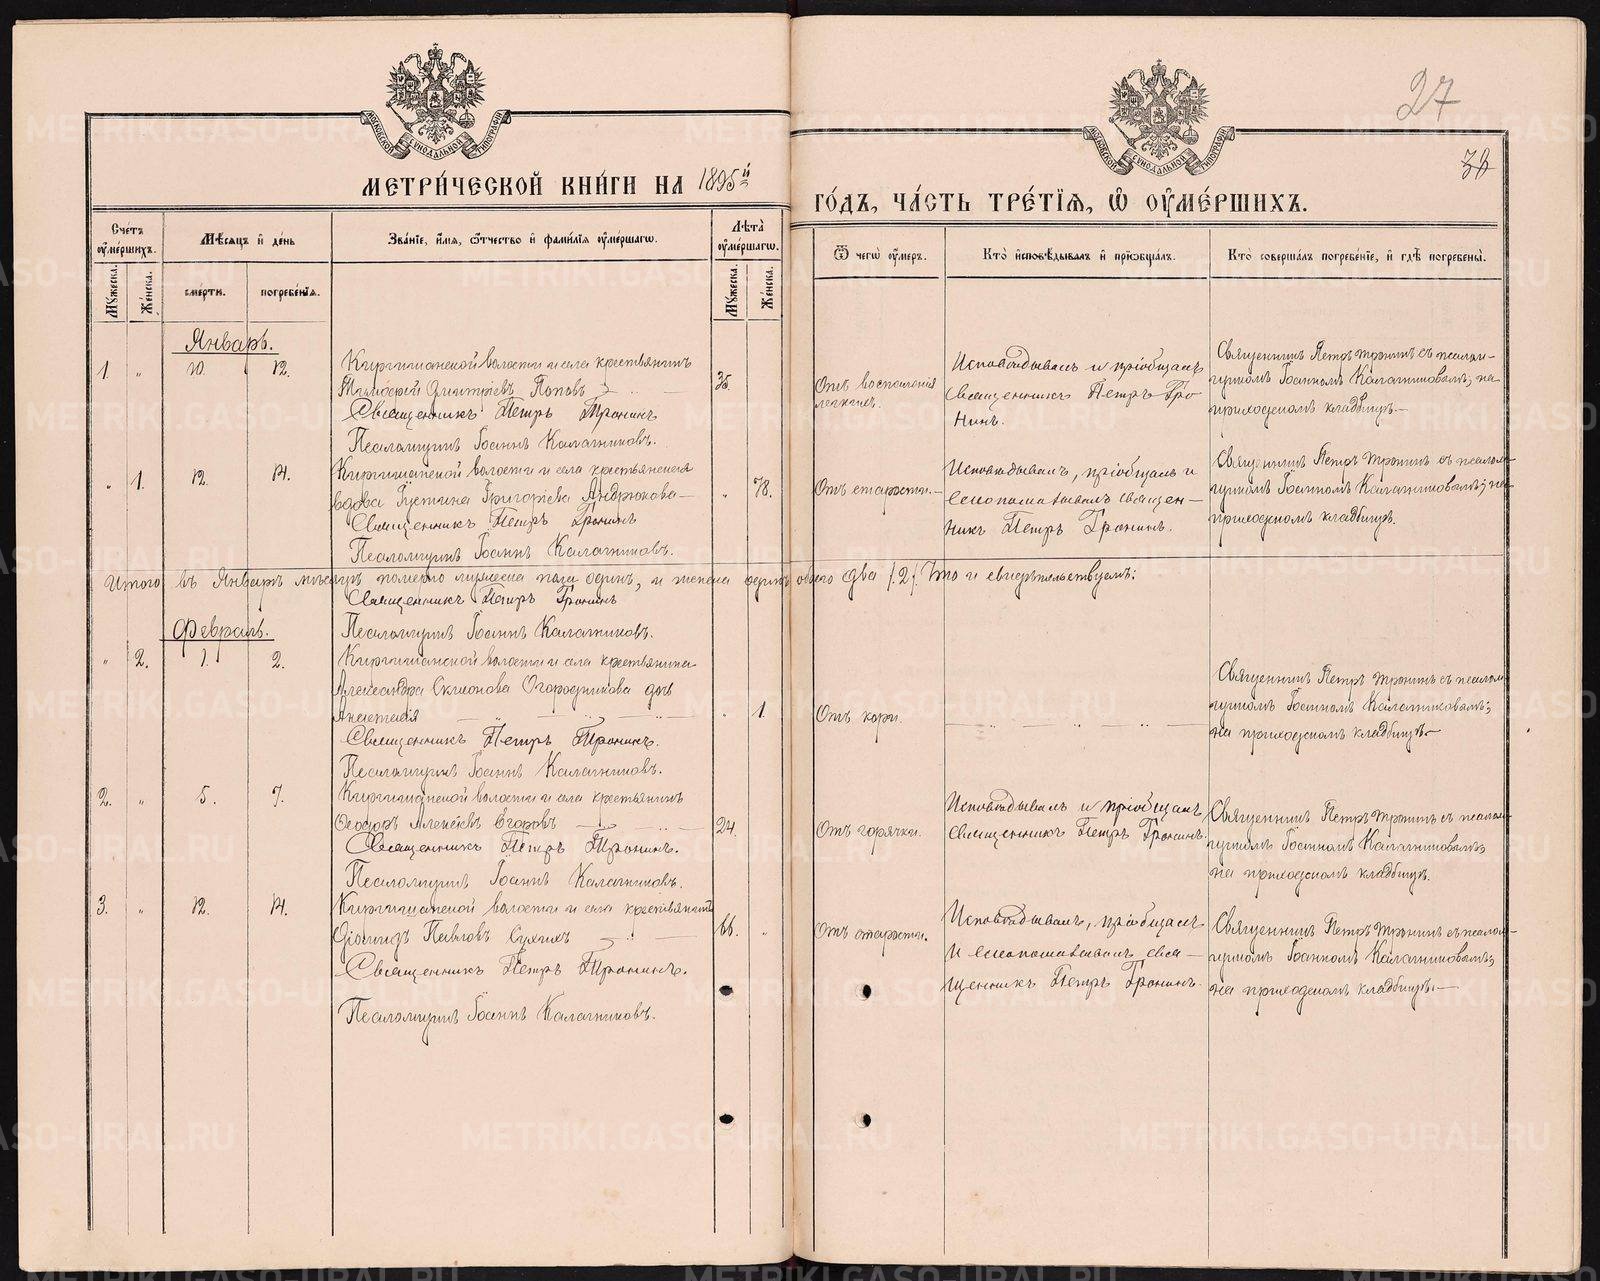 27
30
МОСКОВСКОЙ СѴНОДАЛЬНОЙ ТИПОГРАФІИ
МОСКОВСКОЙ СѴНОДАЛЬНОЙ ТИПОГРАФІИ
МЕТРИ́ЧЕСКОЙ КНИ́ГИ НА 1895й ГО́ДЪ, ЧА́СТЬ ТРЕ́ТІѦ, Ѡ ОУМЕ́РШИХЪ.
Сче́тъ оуме́ршихъ.
Мꙋ́жеска.
Же́нска.
Мѣ́сяцъ и де́нь
сме́рти.
погребе́нїя.
Зва́нїе, и́мя, ѿчество и фами́лїя оуме́ршагѡ.
Лѣта̀ оуме́ршагѡ.
Мꙋ́жеска.
Же́нска.
Ѿ чегѡ̀ оу́меръ.
Кто̀ исповѣ́дывалъ и прїѡбща́лъ.
Кто̀ соверша́лъ погребе́нїе, и гдѣ̀ погребены̀.
Январь.
1. " 10. 12.
Киргишанской волости и села крестьянинъ
Тимофей Димитріевъ Поповъ
35.
Священникъ Петръ Тронинъ
Псаломщикъ Іоаннъ Калашниковъ.
Отъ воспаленія
легкихъ.
Исповѣдывалъ и пріобщалъ
Священникъ Петръ Тро
нинъ.
Священникъ Петръ Тронинъ съ псалом-
щикомъ Іоанномъ Калашниковымъ; на
приходскомъ кладбищѣ.—
" 1. 12. 14.
Киргишанской волости и села крестьянская
вдова Іустина Григорьева Андрюкова—
" 78.
Священникъ Петръ Тронинъ
Псаломщикъ Іоаннъ Калашниковъ.
Отъ старости.—
Исповѣдывалъ, пріобщалъ и
елеопомазывалъ священ—
никъ Петръ Тронинъ.
Священникъ Петръ Тронинъ съ псалом-
щикомъ Іоанномъ Калашниковымъ; на
приходскомъ кладбищѣ.
Итого въ Январѣ мѣсяцѣ померло мужеска пола одинъ, и женска одинъ, обоего два /2/. Что и свидѣтельствуемъ:
Священникъ Петръ Тронинъ
Псаломщикъ Іоаннъ Калашниковъ.
Февраль.
" 2. 1. 2.
Киргишанской волости и села крестьянина
Александра Огородникова дочь
Анастасія
" 1.
Священникъ Петръ Тронинъ.
Псаломщикъ Іоаннъ Калашниковъ.
Отъ кори.
Священникъ Петръ Тронинъ съ псалом
щикомъ Іоанномъ Калашниковымъ;
на приходскомъ кладбищѣ—
2. " 5. 7.
Киргишанской волости и села крестьянинъ
Ѳеодоръ Алексѣевъ Егоровъ
24.
Священникъ Петръ Тронинъ.
Псаломщикъ Іоаннъ Калашниковъ.
Отъ горячки.
Исповѣдывалъ и пріобщалъ
священникъ Петръ Тронинъ.
Священникъ Петръ Тронинъ съ псалом
щикомъ Іоанномъ Калашниковымъ;
на приходскомъ кладбищѣ.
3. " 12. 14.
Киргишанской волости и села крестьянинъ
Діомидъ Павловъ Сухихъ
66. "
Священникъ Петръ Тронинъ.
Псаломщикъ Іоаннъ Калашниковъ.
Отъ старости.
Исповѣдывалъ, пріобщалъ
и елеопомазывалъ свя—
щенникъ Петръ Тронинъ.
Священникъ Петръ Тронинъ съ псалом-
щикомъ Іоанномъ Калашниковымъ;
на приходскомъ кладбищѣ.—
METRIKI.GASO-URAL.RU